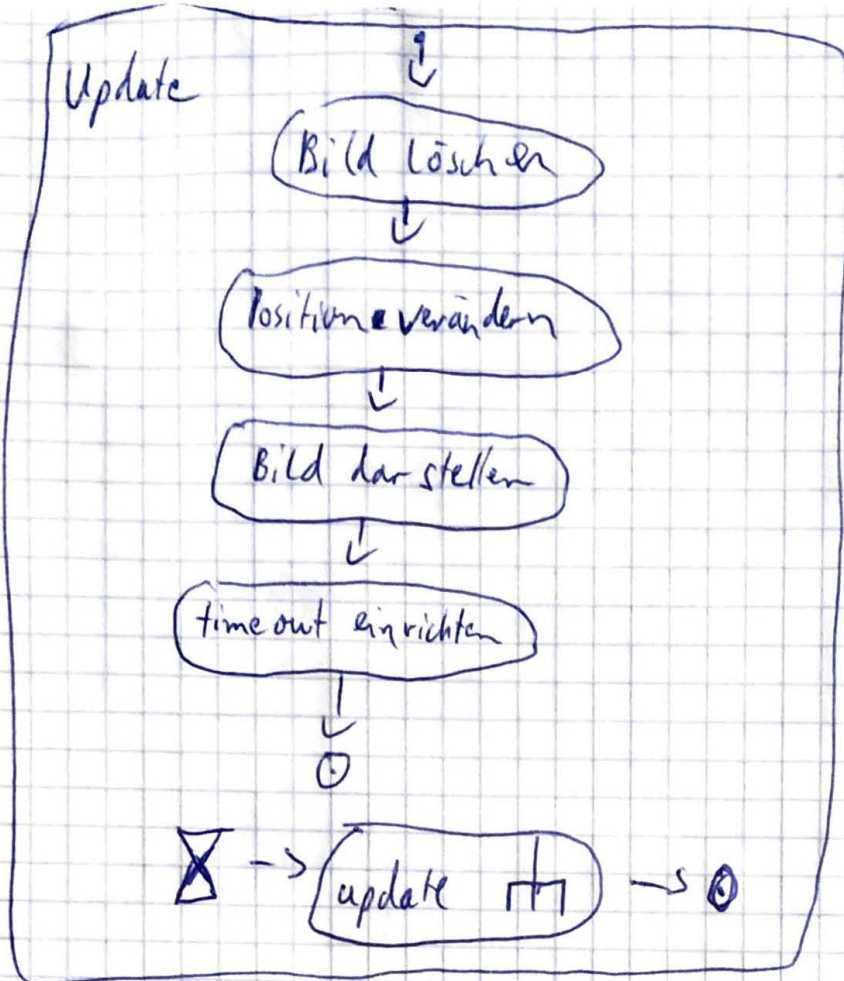 Update
Bild löschen
Position verändern
Bild darstellen
timeout einrichten
update